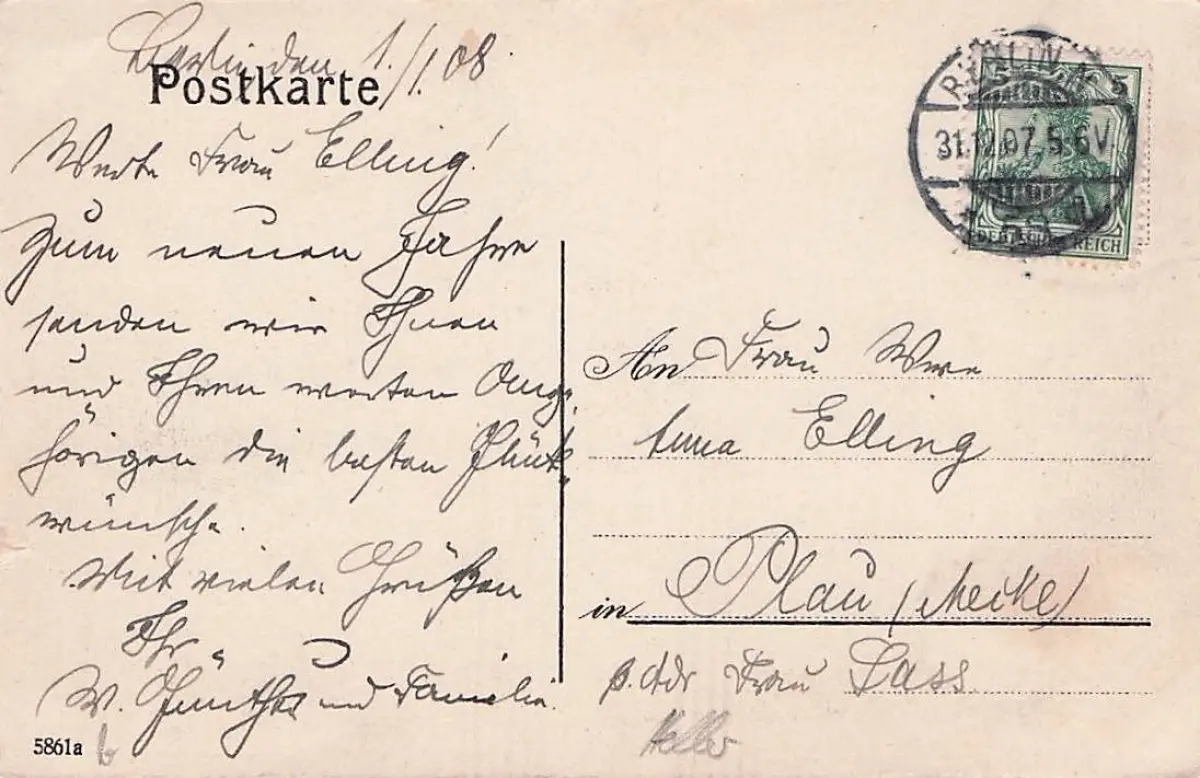 Berlin den 1./1.08.
Postkarte
Werte Frau Elling!
Zum neuen Jahre
senden wir Ihnen
und Ihren werten Ange,
hörigen die besten Glück„
wünsche.
Mit vielen Grüßen
Ihr
W. Günther und Familie.
5861a
BERLIN
31.12.07.5-6V.
5 5
DEUTSCHES REICH
An Frau Wwe
Elling
in Plau (Meckl)
p. Adr Frau Lass
Heller